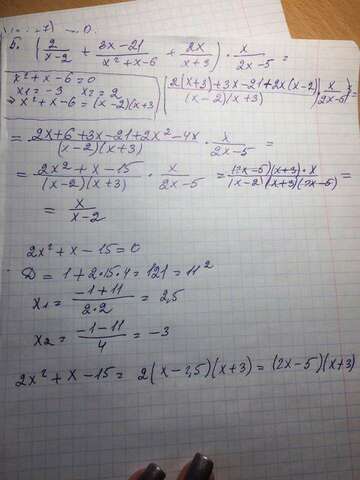 5. (2/(x-2) + (3x-21)/(x²+x-6) + 2x/(x+3)) · x/(2x-5) =
x²+x-6=0
x₁=-3 x₂=2
⇒ x²+x-6=(x-2)(x+3)
(2(x+3)+3x-21+2x(x-2))/((x-2)(x+3)) · x/(2x-5) =
= (2x+6+3x-21+2x²-4x)/((x-2)(x+3)) · x/(2x-5) =
= (2x²+x-15)/((x-2)(x+3)) · x/(2x-5) = ((2x-5)(x+3)·x)/((x-2)(x+3)(2x-5)) =
= x/(x-2)
2x²+x-15=0
D = 1+2·15·4=121=11²
x₁ = (-1+11)/(2·2) = 2,5
x₂ = (-1-11)/4 = -3
2x²+x-15= 2(x-2,5)(x+3)=(2x-5)(x+3)